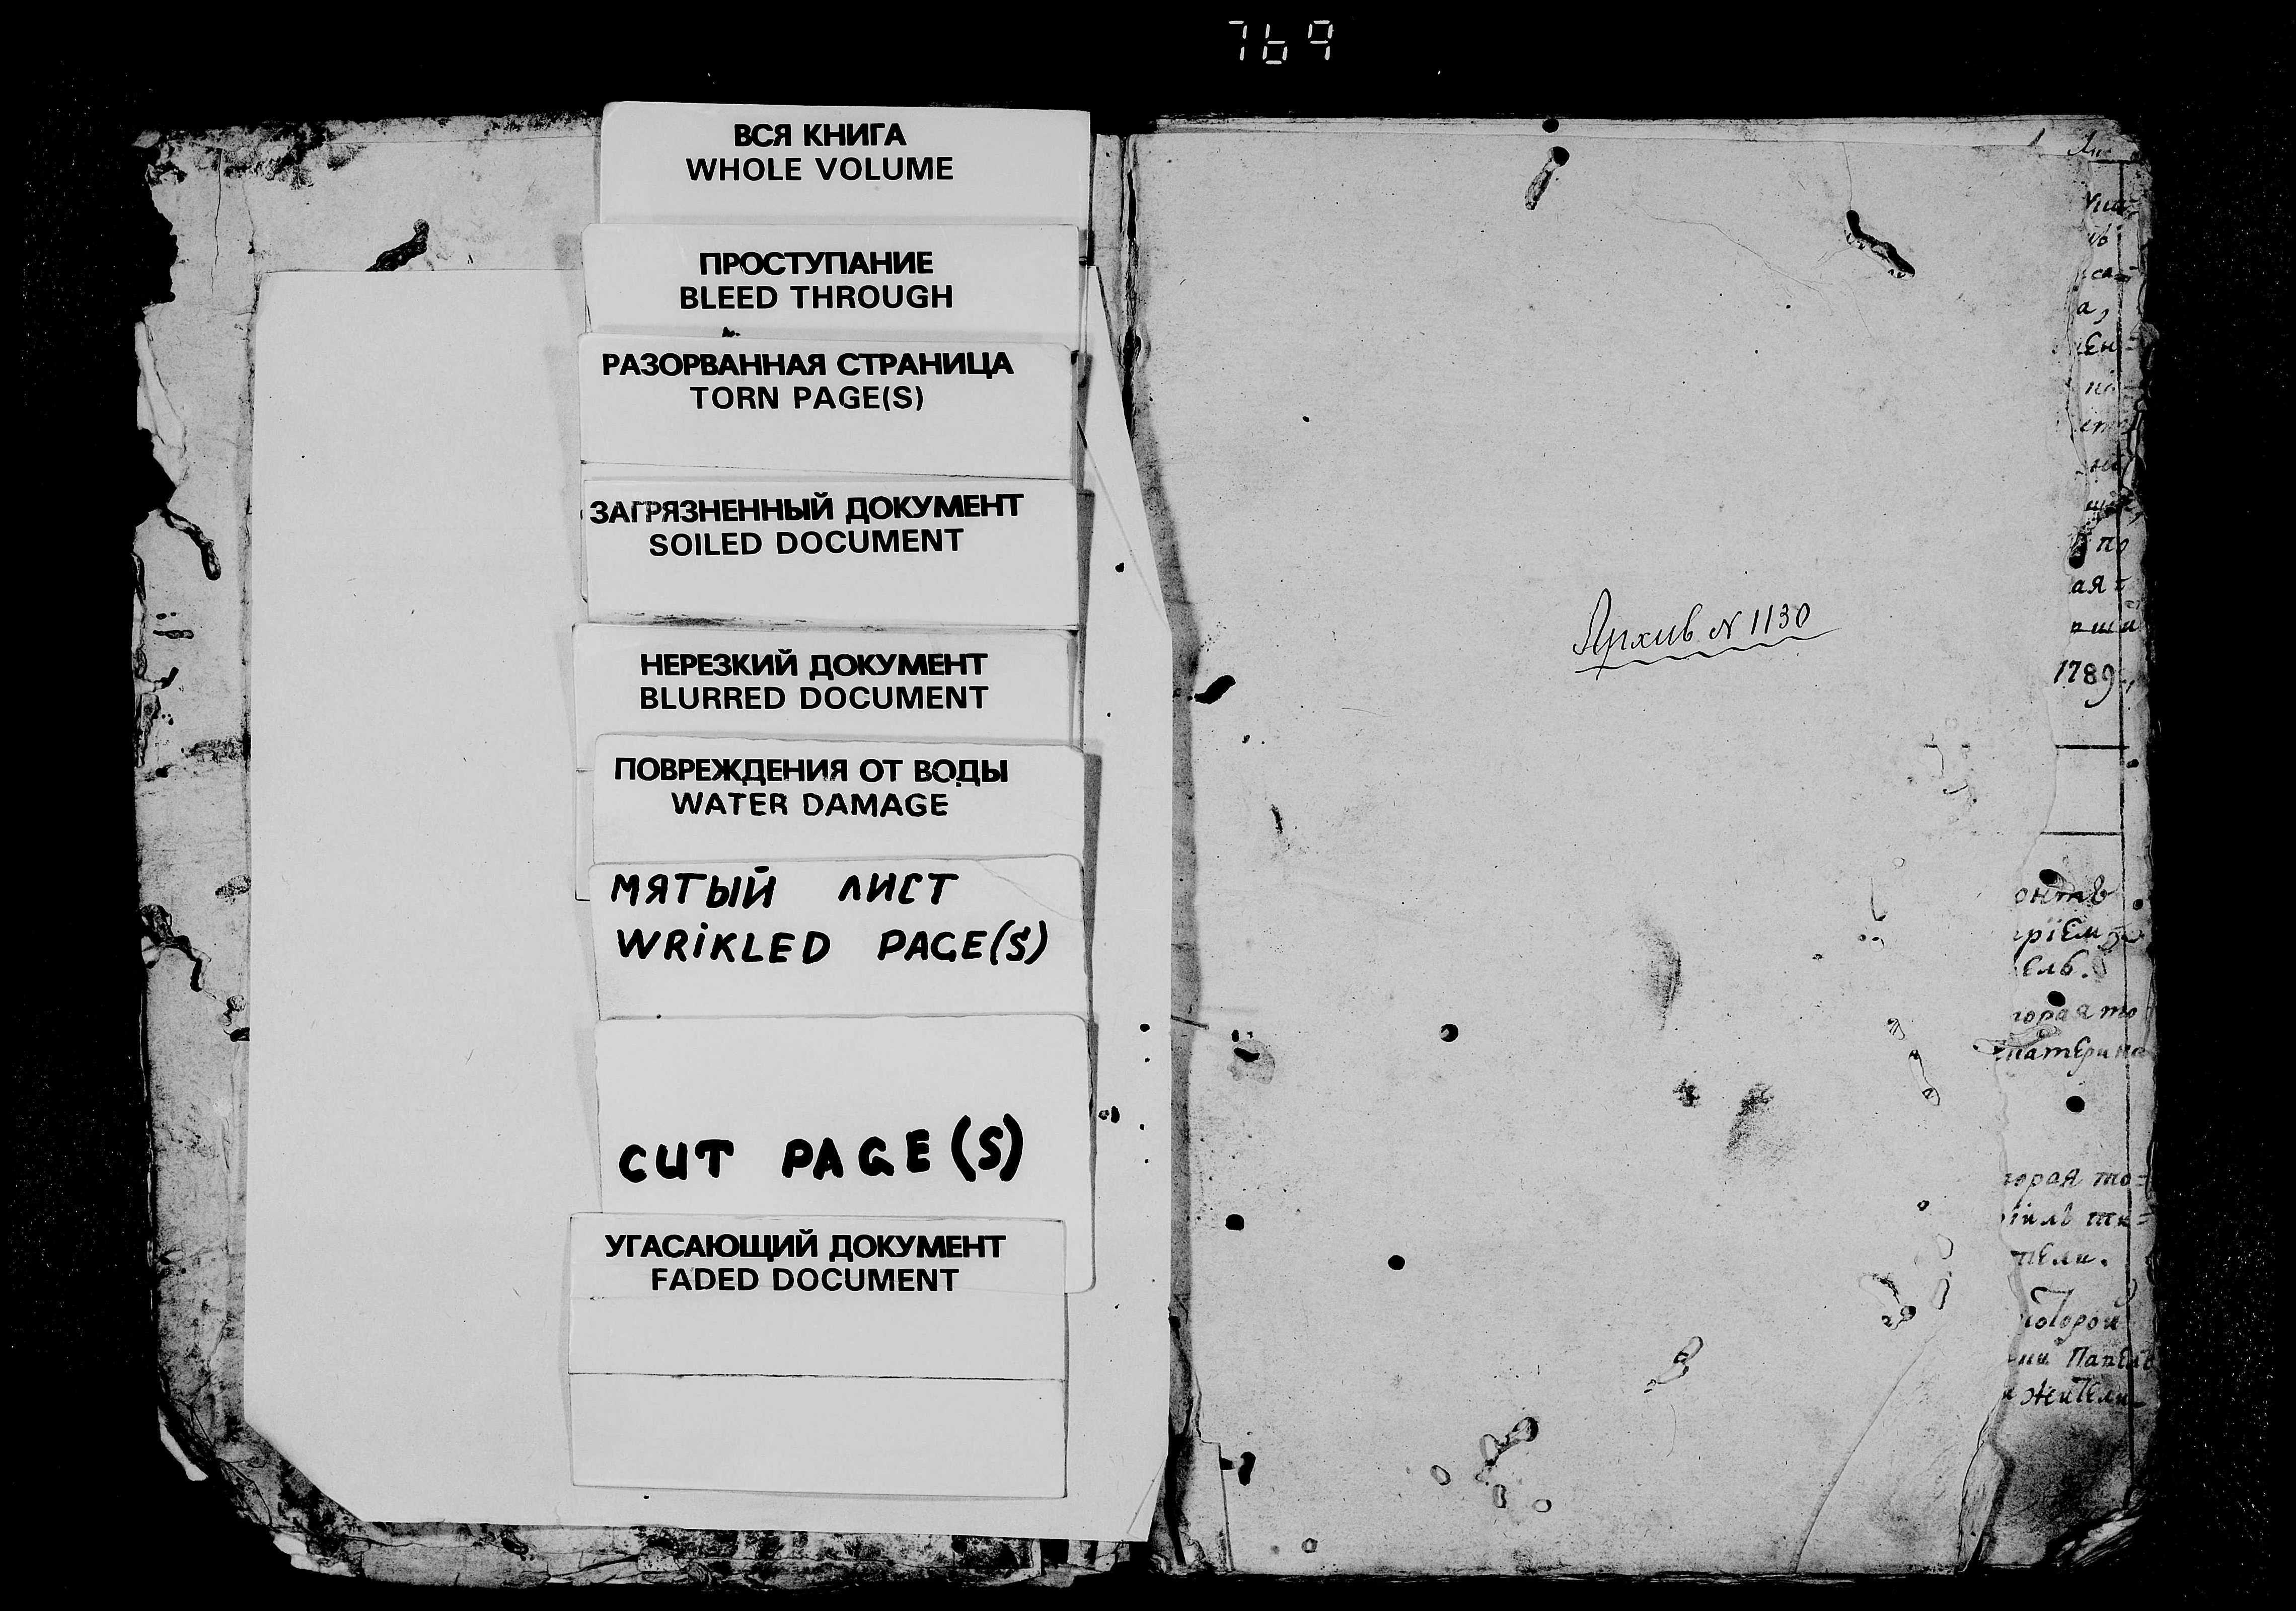 769
ВСЯ КНИГА
WHOLE VOLUME
ПРОСТУПАНИЕ
BLEED THROUGH
РАЗОРВАННАЯ СТРАНИЦА
TORN PAGE(S)
ЗАГРЯЗНЕННЫЙ ДОКУМЕНТ
SOILED DOCUMENT
НЕРЕЗКИЙ ДОКУМЕНТ
BLURRED DOCUMENT
ПОВРЕЖДЕНИЯ ОТ ВОДЫ
WATER DAMAGE
МЯТЫЙ ЛИСТ
WRIKLED PAGE(S)
CUT PAGE(S)
УГАСАЮЩИЙ ДОКУМЕНТ
FADED DOCUMENT
Архив N 1130
а,
по
ая
1789
ель.
горая то
горая то=
тели.
которой
жители